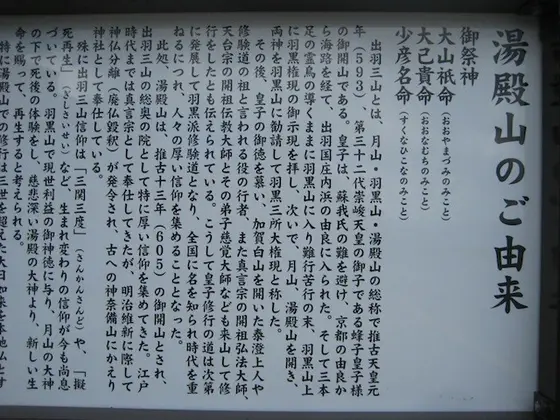 湯殿山のご由来
御祭神
大山祇命（おおやまづみのみこと）
大己貴命（おおなむちのみこと）
少彦名命（すくなひこなのみこと）
出羽三山とは、月山・羽黒山・湯殿山の総称で推古天皇元
年（593）第三十二代崇峻天皇の御子である蜂子皇子様
の御開山である。皇子は、蘇我氏の難を避け、京都の由良か
ら海路を経て、出羽国庄内浜の由良に入られた。そして三本
足の霊烏の導くままに羽黒山に入り難行苦行の末、羽黒山上
に羽黒権現の御示現を拝し、次いで、月山、湯殿山を開き、
両神を羽黒山に勧請して羽黒三所大権現と称した。
その後、皇子の御徳を慕い、加賀白山を開いた泰澄上人や
修験道の祖と言われる役の行者、また真言宗の開祖弘法大師、
天台宗の開祖伝教大師とその弟子慈覚大師なども来山して修
行をしたとも伝えられている。こうして皇子修行の道は次第
に発展して羽黒派修験道となり、全国に名を知られ時代を重
ねるにつれ、人々の厚い信仰を集めることとなった。
此処、湯殿山は、推古十三年（605）の御開山とされ、
出羽三山の総奥の院として特に厚い信仰を集めてきた。江戸
時代までは真言宗として奉仕してきたが、明治維新に際して
神仏分離（廃仏毀釈）が発令され、古への神奈備山にかえり
神社として奉仕している。
殊に出羽三山信仰は「三関三度」（さんかんさんど）や、「擬
死再生」（ぎしさいせい）など、生まれ変わりの信仰が今も尚息
づいている。羽黒山で現世利益の御神徳に与り、月山の大神
の下で死後の体験をし、慈悲深い湯殿の大神より、新しい生
命を賜って、再生すると考えられる。
特に湯殿山での修行は三世を超えた大日如来を本地仏とす